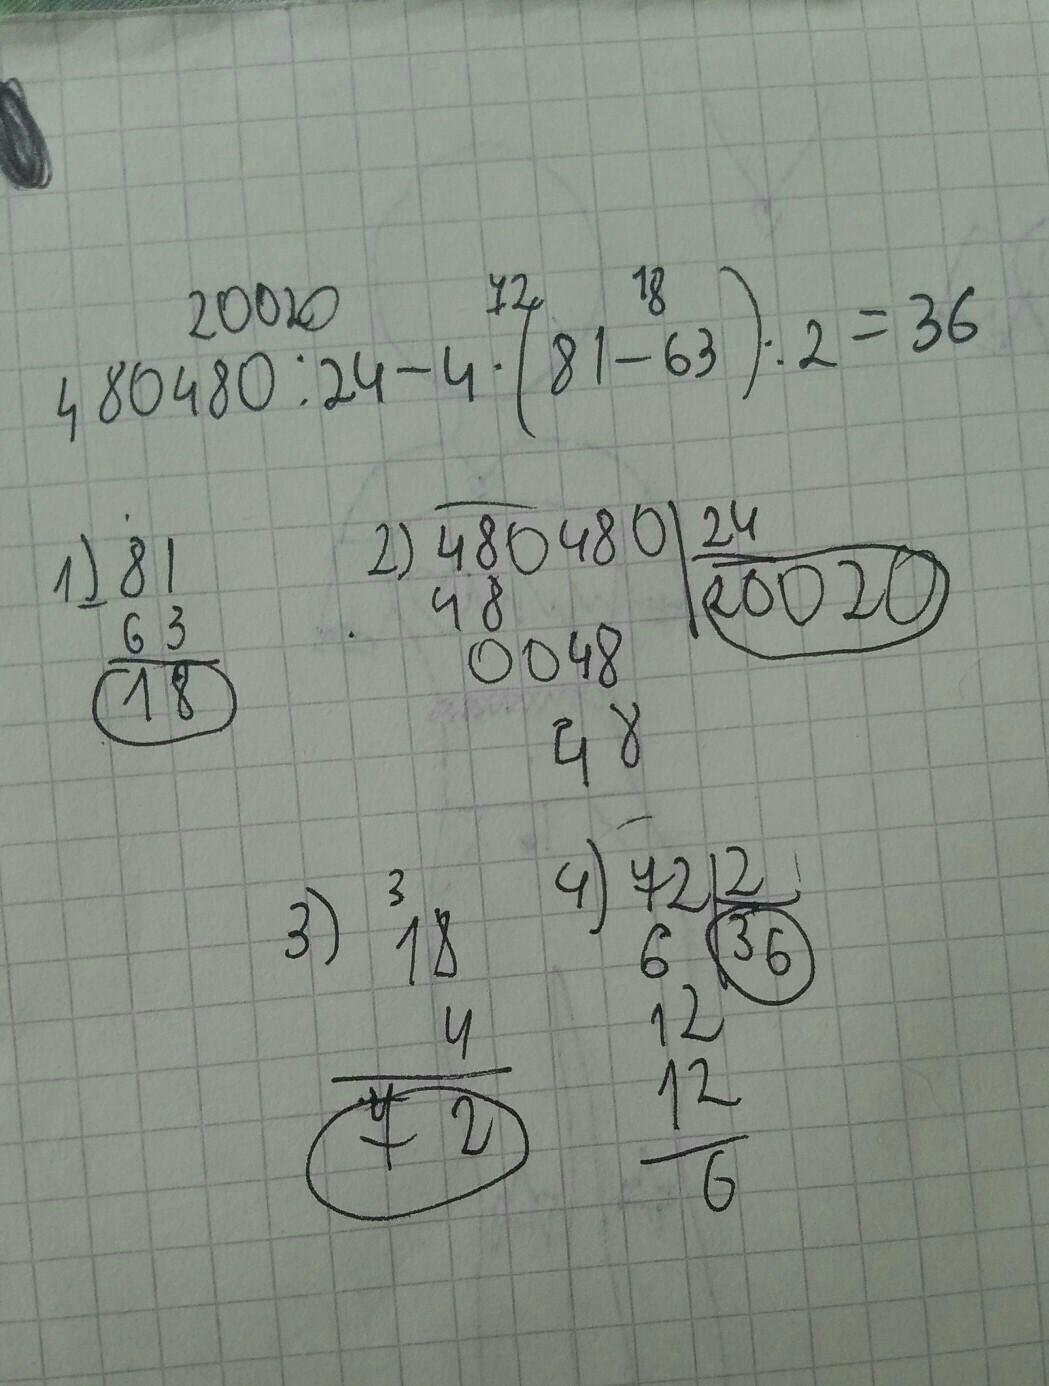 20020 72 18
480480:24-4·(81-63):2=36
1) 81 2) 480480 24
63 48 20020
18 0048
48
3) 3 4) 72 2
18 6 36
4 12
72 12
6